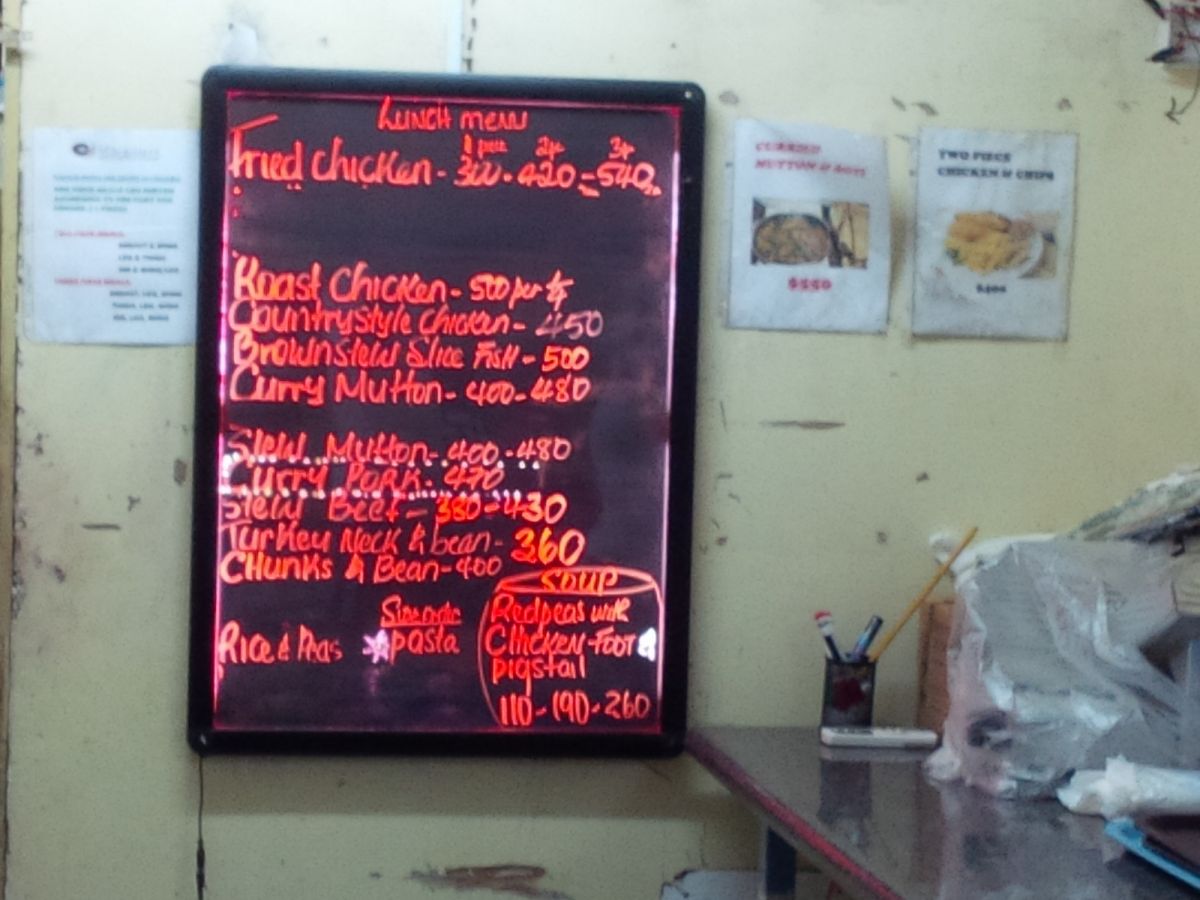 LUNCH menu
1 piece 2pc 3pc
Fried Chicken - 300 - 420 - 540
Roast Chicken - 500 per 1/4
Countrystyle Chicken - 450
Brownstew Slice Fish - 500
Curry Mutton - 400 - 480
Stew Mutton - 400 - 480
Curry Pork - 470
Stew Beef - 380 - 430
Turkey Neck & bean - 360
CHunks & Bean - 400
Side order
Rice & Peas pasta
SOUP
Redpeas with
CHICKEN-FOOT &
pigstail
110 - 190 - 260
CURRIED
MUTTON & ROTI
$550
TWO PIECE
CHICKEN & CHIPS